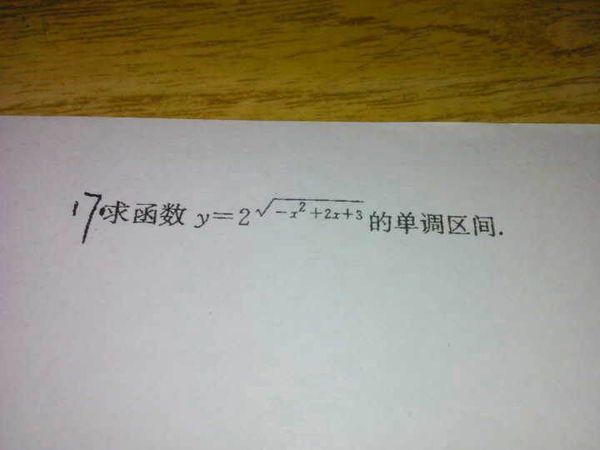 17.求函数 y=2^{\sqrt{-x^2+2x+3}} 的单调区间.